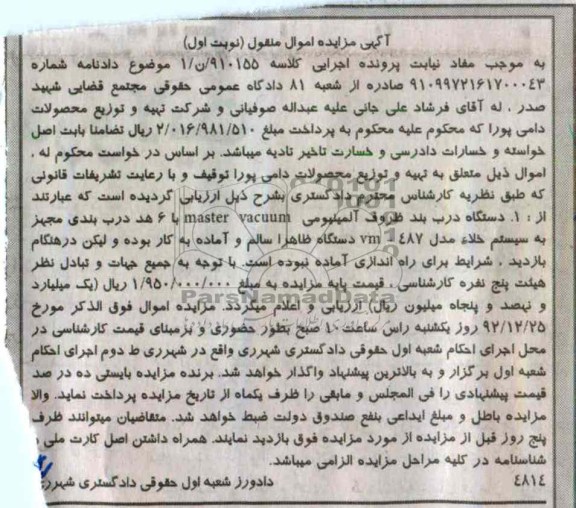 آگهی مزایده اموال منقول (نوبت اول)
به موجب مفاد نیابت پرونده اجرایی کلاسه ۹۱۰۱۵۵/ن/۱ موضوع دادنامه شماره
۹۱۰۹۹۷۲۱۶۱۷۰۰۰۴۳ صادره از شعبه ۸۱ دادگاه عمومی حقوقی مجتمع قضایی شهید
صدر ، له آقای فرشاد علی جانی علیه عبداله صوفیانی و شرکت تهیه و توزیع محصولات
دامی پورا که محکوم علیه محکوم به پرداخت مبلغ ۲/۰۱۶/۹۸۱/۵۱۰ ریال تضامنا بابت اصل
خواسته و خسارات دادرسی و خسارت تاخیر تادیه میباشد. بر اساس در خواست محکوم له ،
اموال ذیل متعلق به تهیه و توزیع محصولات دامی پورا توقیف و با رعایت تشریفات قانونی
که طبق نظریه کارشناس محترم دادگستری بشرح ذیل ارزیابی گردیده است که عبارتند
از : ۱. دستگاه درب بند ظروف آلمینیومی master vacuum با ۶ هد درب بندی مجهز
به سیستم خلاء مدل vm ۴۸۷ دستگاه ظاهرا سالم و آماده به کار بوده و لیکن درهنگام
بازدید ، شرایط برای راه اندازی آماده نبوده است. با توجه به جمیع جهات و تبادل نظر
هیئت پنج نفره کارشناسی ، قیمت پایه مزایده به مبلغ ۱/۹۵۰/۰۰۰/۰۰۰ ریال (یک میلیارد
و نهصد و پنجاه میلیون ریال) ارزیابی و اعلام میگردد. مزایده اموال فوق الذکر مورخ
۹۲/۱۲/۲۵ روز یکشنبه راس ساعت ۱۰ صبح بطور حضوری و برمبنای قیمت کارشناسی در
محل اجرای احکام شعبه اول حقوقی دادگستری شهرری واقع در شهرری ط دوم اجرای احکام
شعبه اول برگزار و به بالاترین پیشنهاد واگذار خواهد شد. برنده مزایده بایستی ده در صد
قیمت پیشنهادی را فی المجلس و مابقی را ظرف یکماه از تاریخ مزایده پرداخت نماید. والا
مزایده باطل و مبلغ ابداعی بنفع صندوق دولت ضبط خواهد شد. متقاضیان میتوانند ظرف
پنج روز قبل از مزایده از مورد مزایده فوق بازدید نمایند. همراه داشتن اصل کارت ملی و
شناسنامه در کلیه مراحل مزایده الزامی میباشد.
۴۸۱۴ دادورز شعبه اول حقوقی دادگستری شهرری
ParsNamadData